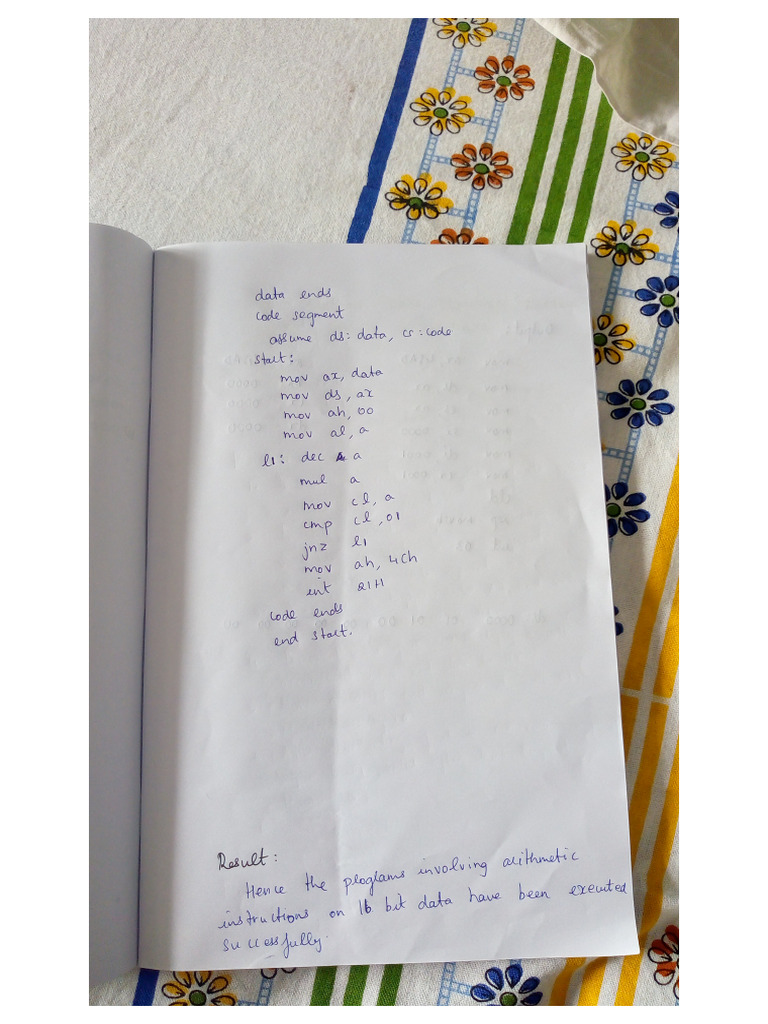 data ends
code segment
assume ds: data, cs: code
start:
mov ax, data
mov ds, ax
mov ah, 00
mov al, a
l1: dec a
mul a
mov cl, a
cmp cl, 01
jnz l1
mov ah, 4Ch
int 21H
code ends
end start.
Result:
Hence the programs involving arithmetic
instructions on 16 bit data have been executed
successfully.